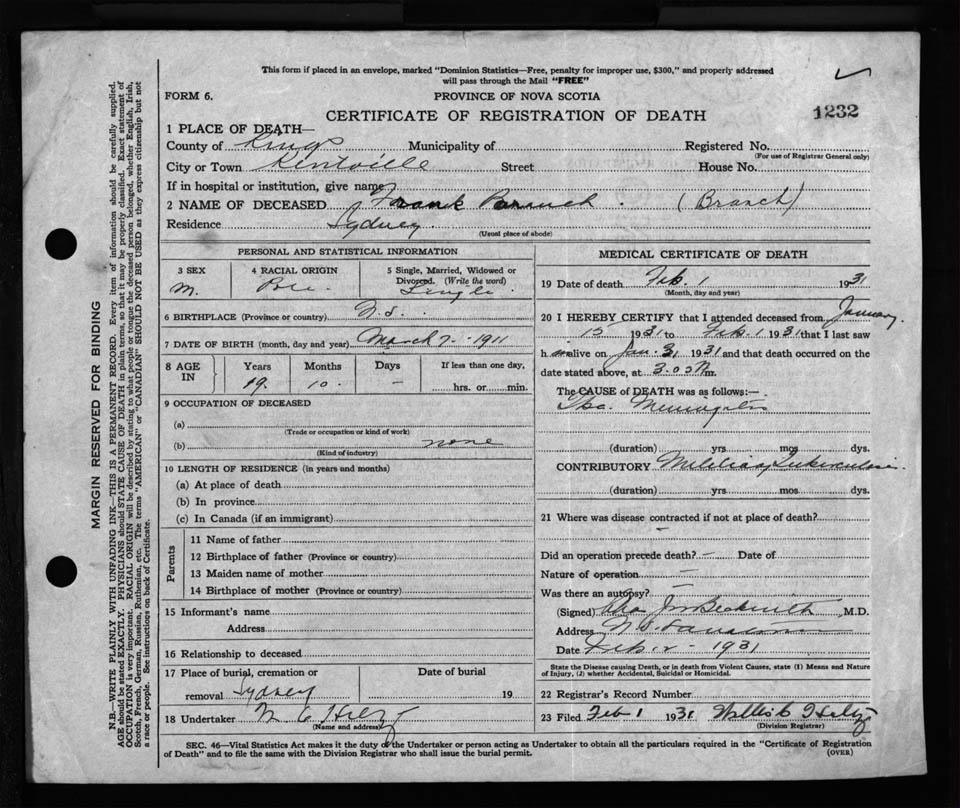 This form if placed in an envelope, marked "Dominion Statistics—Free, penalty for improper use, $300," and properly addressed
will pass through the Mail "FREE"
FORM 6.
PROVINCE OF NOVA SCOTIA
CERTIFICATE OF REGISTRATION OF DEATH
1232
1 PLACE OF DEATH—
County of Kings Municipality of Registered No.
(For use of Registrar General only)
City or Town Kentville Street House No.
If in hospital or institution, give name
2 NAME OF DECEASED Frank (Branch)
Residence Sydney.
(Usual place of abode)
PERSONAL AND STATISTICAL INFORMATION
3 SEX 4 RACIAL ORIGIN 5 Single, Married, Widowed or
Divorced. (Write the word)
M. Single.
6 BIRTHPLACE (Province or country) N.S.
7 DATE OF BIRTH (month, day and year) March 7 - 1911
8 AGE IN Years Months Days If less than one day,
19. 10. - hrs. or min.
9 OCCUPATION OF DECEASED
(a)
(Trade or occupation or kind of work)
(b) none
(Kind of industry)
10 LENGTH OF RESIDENCE (in years and months)
(a) At place of death
(b) In province
(c) In Canada (if an immigrant)
Parents
11 Name of father
12 Birthplace of father (Province or country)
13 Maiden name of mother
14 Birthplace of mother (Province or country)
15 Informant's name
Address
16 Relationship to deceased
17 Place of burial, cremation or Date of burial
removal Sydney 19
18 Undertaker
(Name and address)
MEDICAL CERTIFICATE OF DEATH
19 Date of death Feb. 1 1931
(Month, day and year)
20 I HEREBY CERTIFY that I attended deceased from January
15 1931 to Feb. 1 1931 that I last saw
h im alive on Jan. 31 1931 and that death occurred on the
date stated above, at m.
The CAUSE of DEATH was as follows:—
Tbc. Meningitis
(duration) yrs mos dys.
CONTRIBUTORY Miliary Tuberculosis.
(duration) yrs mos dys.
21 Where was disease contracted if not at place of death?
-
Did an operation precede death? - Date of
Nature of operation -
Was there an autopsy?
(Signed) Beckwith M.D.
Address
Date Feb. 2 - 1931
State the Disease causing Death, or in death from Violent Causes, state (1) Means and Nature
of Injury, (2) whether Accidental, Suicidal or Homicidal.
22 Registrar's Record Number
23 Filed Feb 1 1931
(Division Registrar)
SEC. 46—Vital Statistics Act makes it the duty of the Undertaker or person acting as Undertaker to obtain all the particulars required in the "Certificate of Registration
of Death" and to file the same with the Division Registrar who shall issue the burial permit.
(OVER)
MARGIN RESERVED FOR BINDING
N.B.—WRITE PLAINLY WITH UNFADING INK—THIS IS A PERMANENT RECORD. Every item of information should be carefully supplied.
AGE should be stated EXACTLY. PHYSICIANS should STATE CAUSE OF DEATH in plain terms, so that it may be properly classified. Exact statement of
OCCUPATION is very important. RACIAL ORIGIN will be described by stating to what people or tongue the deceased person belonged, whether English, Irish,
Scotch, French, German, Russian, Ruthenian, etc. The terms "AMERICAN" or "CANADIAN" SHOULD NOT BE USED as they express citizenship but not
a race or people. See instructions on back of Certificate.